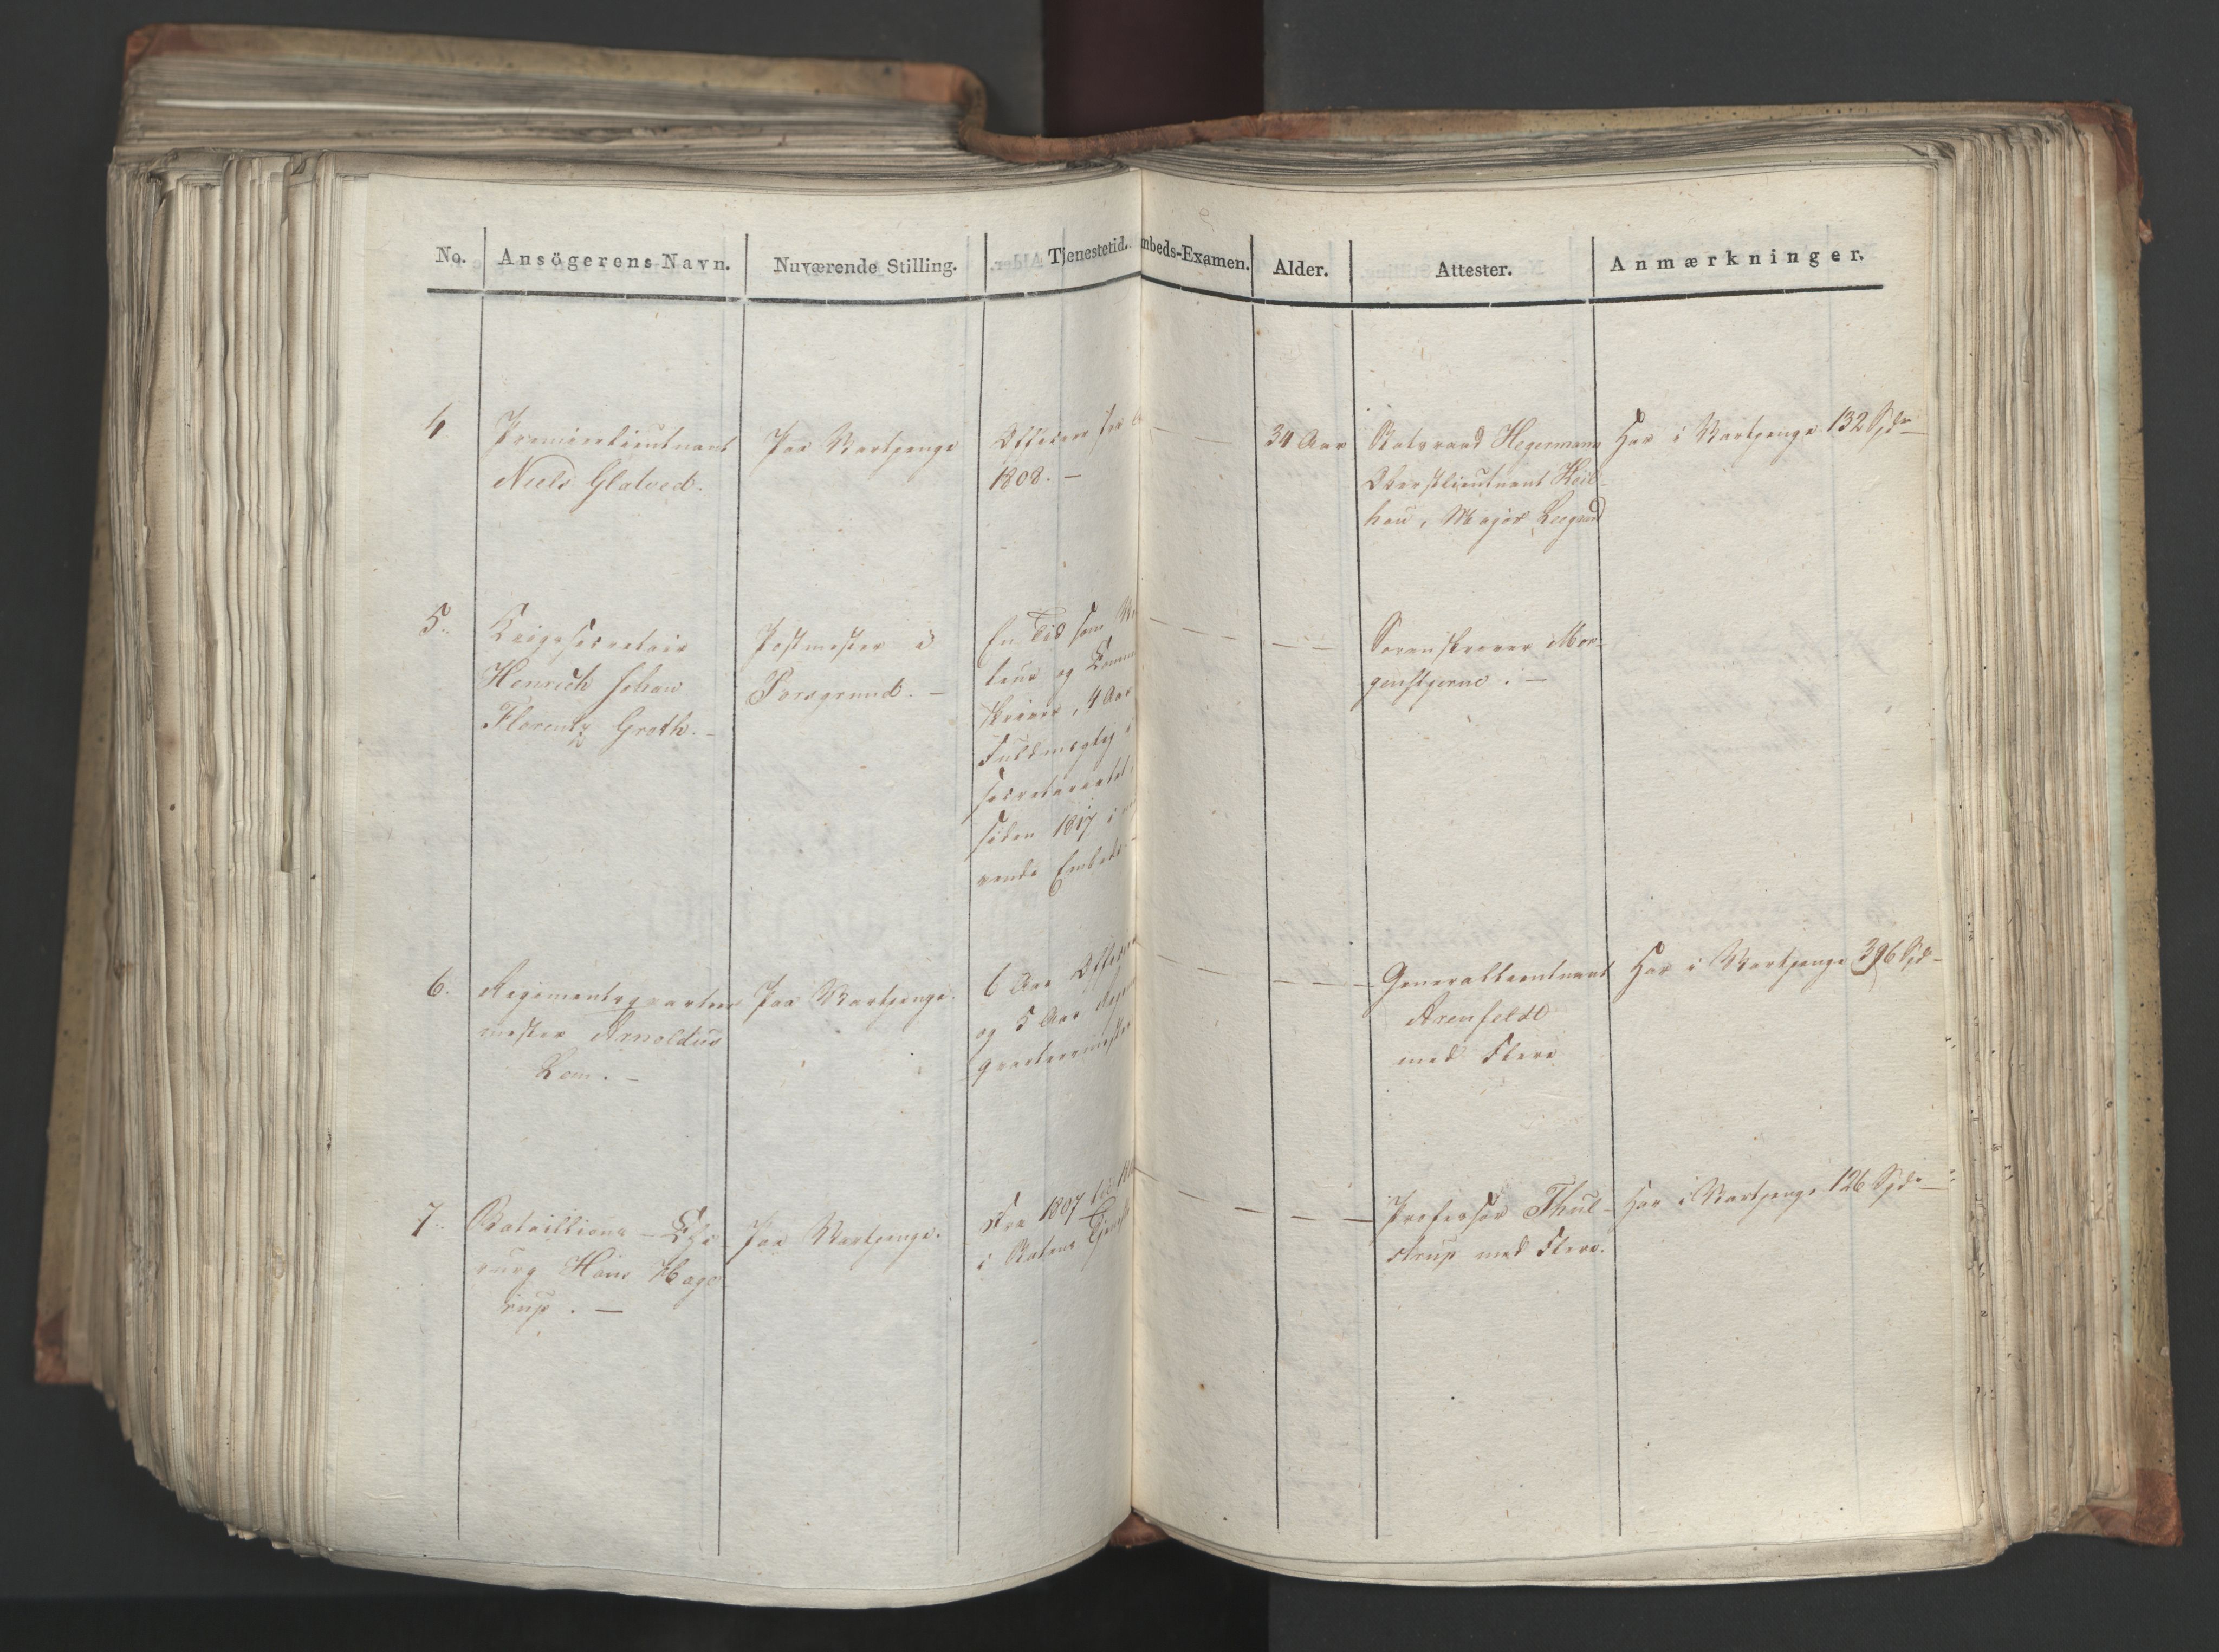 No. Ansögerens Navn. Nuværende Stilling. Tjenestetid. mbeds-Examen. Alder. Attester. Anmærkninger.
4 Premierlieutnant
Niels Glatved.
Paa Vartpenge
Officeer fra
1808. —
— —
34 Aar
Statsraad Hegermann
Oberstlieutnant Heil-
hau, Major
Har i Vartpenge 132 Spdr
5. Krigssecretair
Henrich Johan
Florentz Groth. —
Postmester i
Porsgrund. —
En Tid som
teur og
skriver, 4 Aar
Fuldmægtig i
secretariatet,
siden 1817 i
rende Embede
— — —
— —
Sorenskriver Mor-
genstjerne. —
6. Regimentsqvarteer
mester Arnoldus
Paa Vartpenge.
6 Aar
og 5 Aar
qvarteermester
— — —
— — —
Generallieutnant
Arenfeldt
med Flere
Har i Vartpenge 396 Spd
7. Batallions-Chi
rurg Hans Hage
rup. —
Paa Vartpenge.
Fra 1807 til
i Statens Tjeneste
— — —
— — —
Professor Thul-
strup med Flere.
Har i Vartpenge 126 Spdr